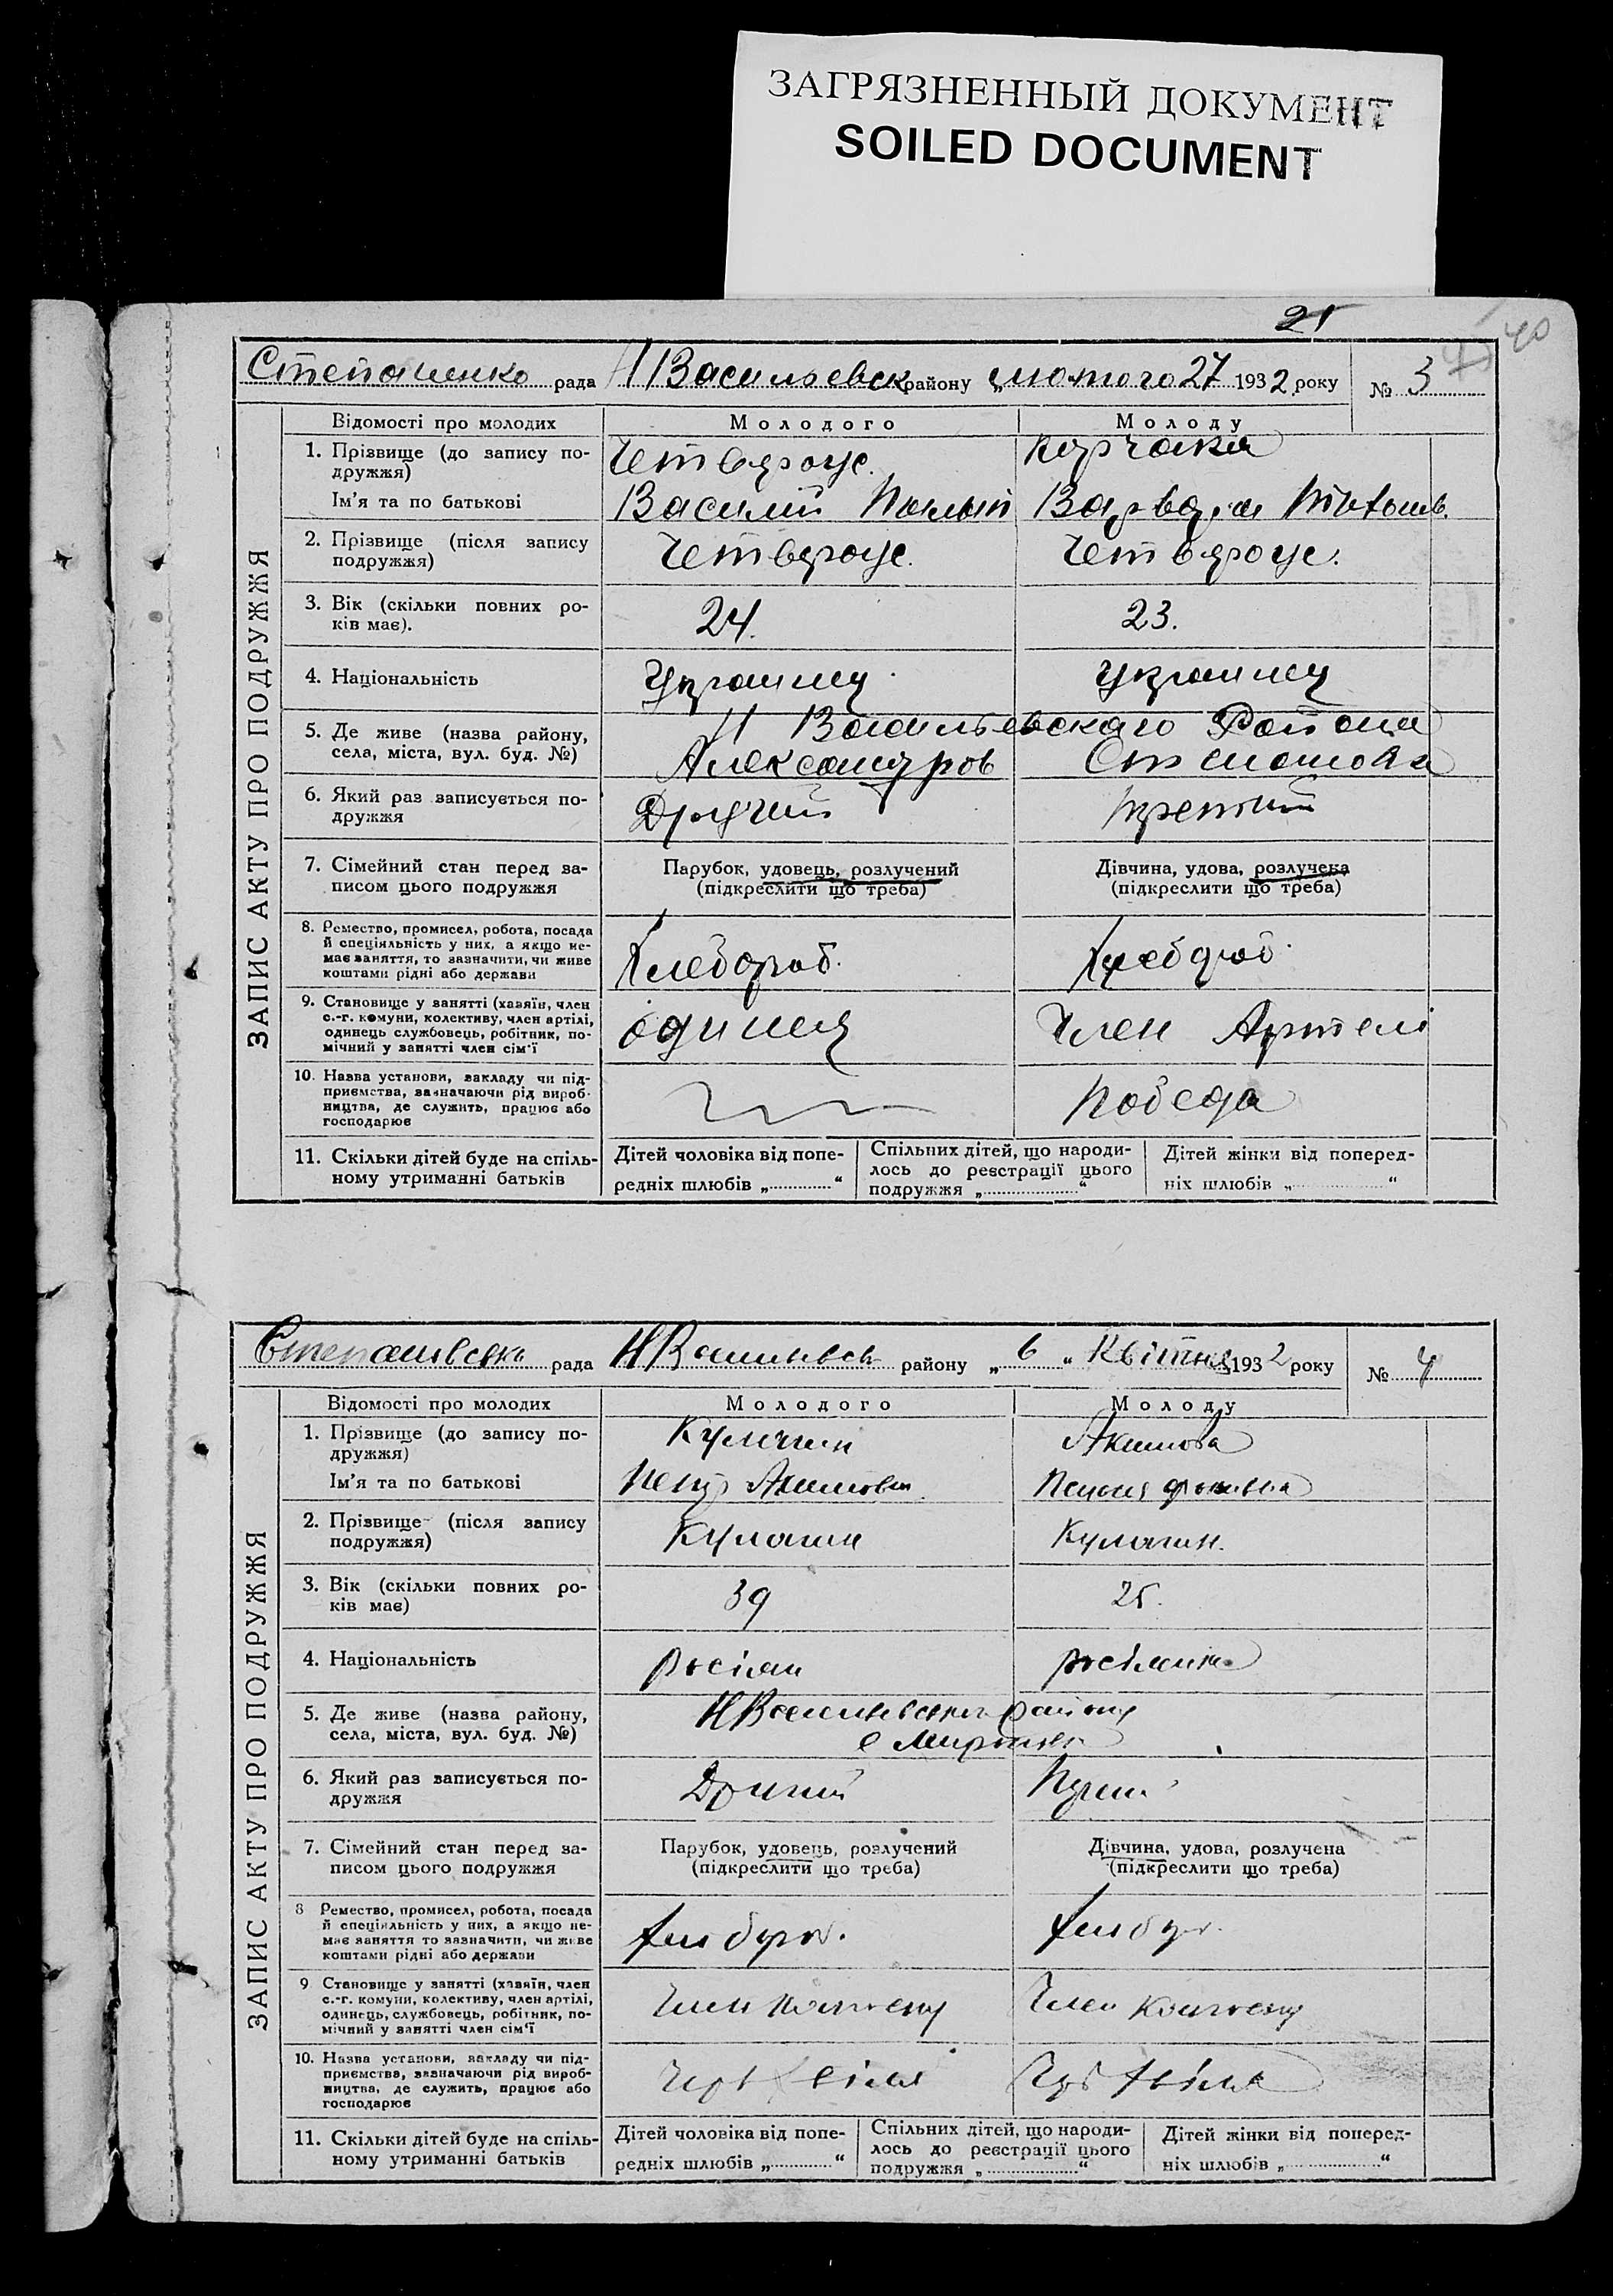 ЗАГРЯЗНЕННЫЙ ДОКУМЕНТ
SOILED DOCUMENT
21
40
рада Н Васильевск району „лютого 27 1932 року № 3
ЗАПИС АКТУ ПРО ПОДРУЖЖЯ
Відомості про молодих Молодого Молоду
1. Прізвище (до запису по-
дружжя)
Четвероус.
Ім'я та по батькові Василий
2. Прізвище (після запису
подружжя)
Четвероус. Четвероус.
3. Вік (скільки повних ро-
ків має).
24. 23.
4. Національність Украинец Украинец
5. Де живе (назва району,
села, міста, вул. буд. №)
Н Васильевскаго Района
Александров
6. Який раз записується по-
дружжя
Другий третий
7. Сімейний стан перед за-
писом цього подружжя
Парубок, удовець, розлучений
(підкреслити що треба)
Дівчина, удова, розлучена
(підкреслити що треба)
8. Ремество, промисел, робота, посада
й спеціяльність у них, а якщо не-
має заняття, то зазначити, чи живе
коштами рідні або держави
Хлебороб. Хлебороб.
9. Становище у занятті (хазяїн, член
с.-г. комуни, колективу, член артілі,
одинець службовець, робітник, по-
мічний у занятті член сім'ї
одинец Член Артели
10. Назва установи, закладу чи під-
приємства, зазначаючи рід вироб-
ництва, де служить, працює або
господарює
Победа
11. Скільки дітей буде на спіль-
ному утриманні батьків
Дітей чоловіка від попе-
редніх шлюбів „ “
Спільних дітей, що народи-
лось до реєстрації цього
подружжя „ “
Дітей жінки від поперед-
ніх шлюбів „ “
рада району „ 6 „ Квітня 1932 року № 4
ЗАПИС АКТУ ПРО ПОДРУЖЖЯ
Відомості про молодих Молодого Молоду
1. Прізвище (до запису по-
дружжя)
Кулагин Акимова
Ім'я та по батькові Петр
2. Прізвище (після запису
подружжя)
Кулагин Кулагин.
3. Вік (скільки повних ро-
ків має)
39 25.
4. Національність росіян росіянка
5. Де живе (назва району,
села, міста, вул. буд. №)
району
6. Який раз записується по-
дружжя
Другий
7. Сімейний стан перед за-
писом цього подружжя
Парубок, удовець, розлучений
(підкреслити що треба)
Дівчина, удова, розлучена
(підкреслити що треба)
8 Ремество, промисел, робота, посада
й спеціяльність у них, а якщо не-
має заняття то зазначити, чи живе
коштами рідні або держави
9 Становище у занятті (хазяїн, член
с.-г. комуни, колективу, член артілі,
одинець, службовець, робітник, по-
мічний у занятті член сім'ї
Член Член
10. Назва установи, закладу чи під-
приємства, зазначаючи рід вироб-
ництва, де служить, працює або
господарює
11. Скільки дітей буде на спіль-
ному утриманні батьків
Дітей чоловіка від попе-
редніх шлюбів „ “
Спільних дітей, що народи-
лось до реєстрації цього
подружжя „ “
Дітей жінки від поперед-
ніх шлюбів „ “